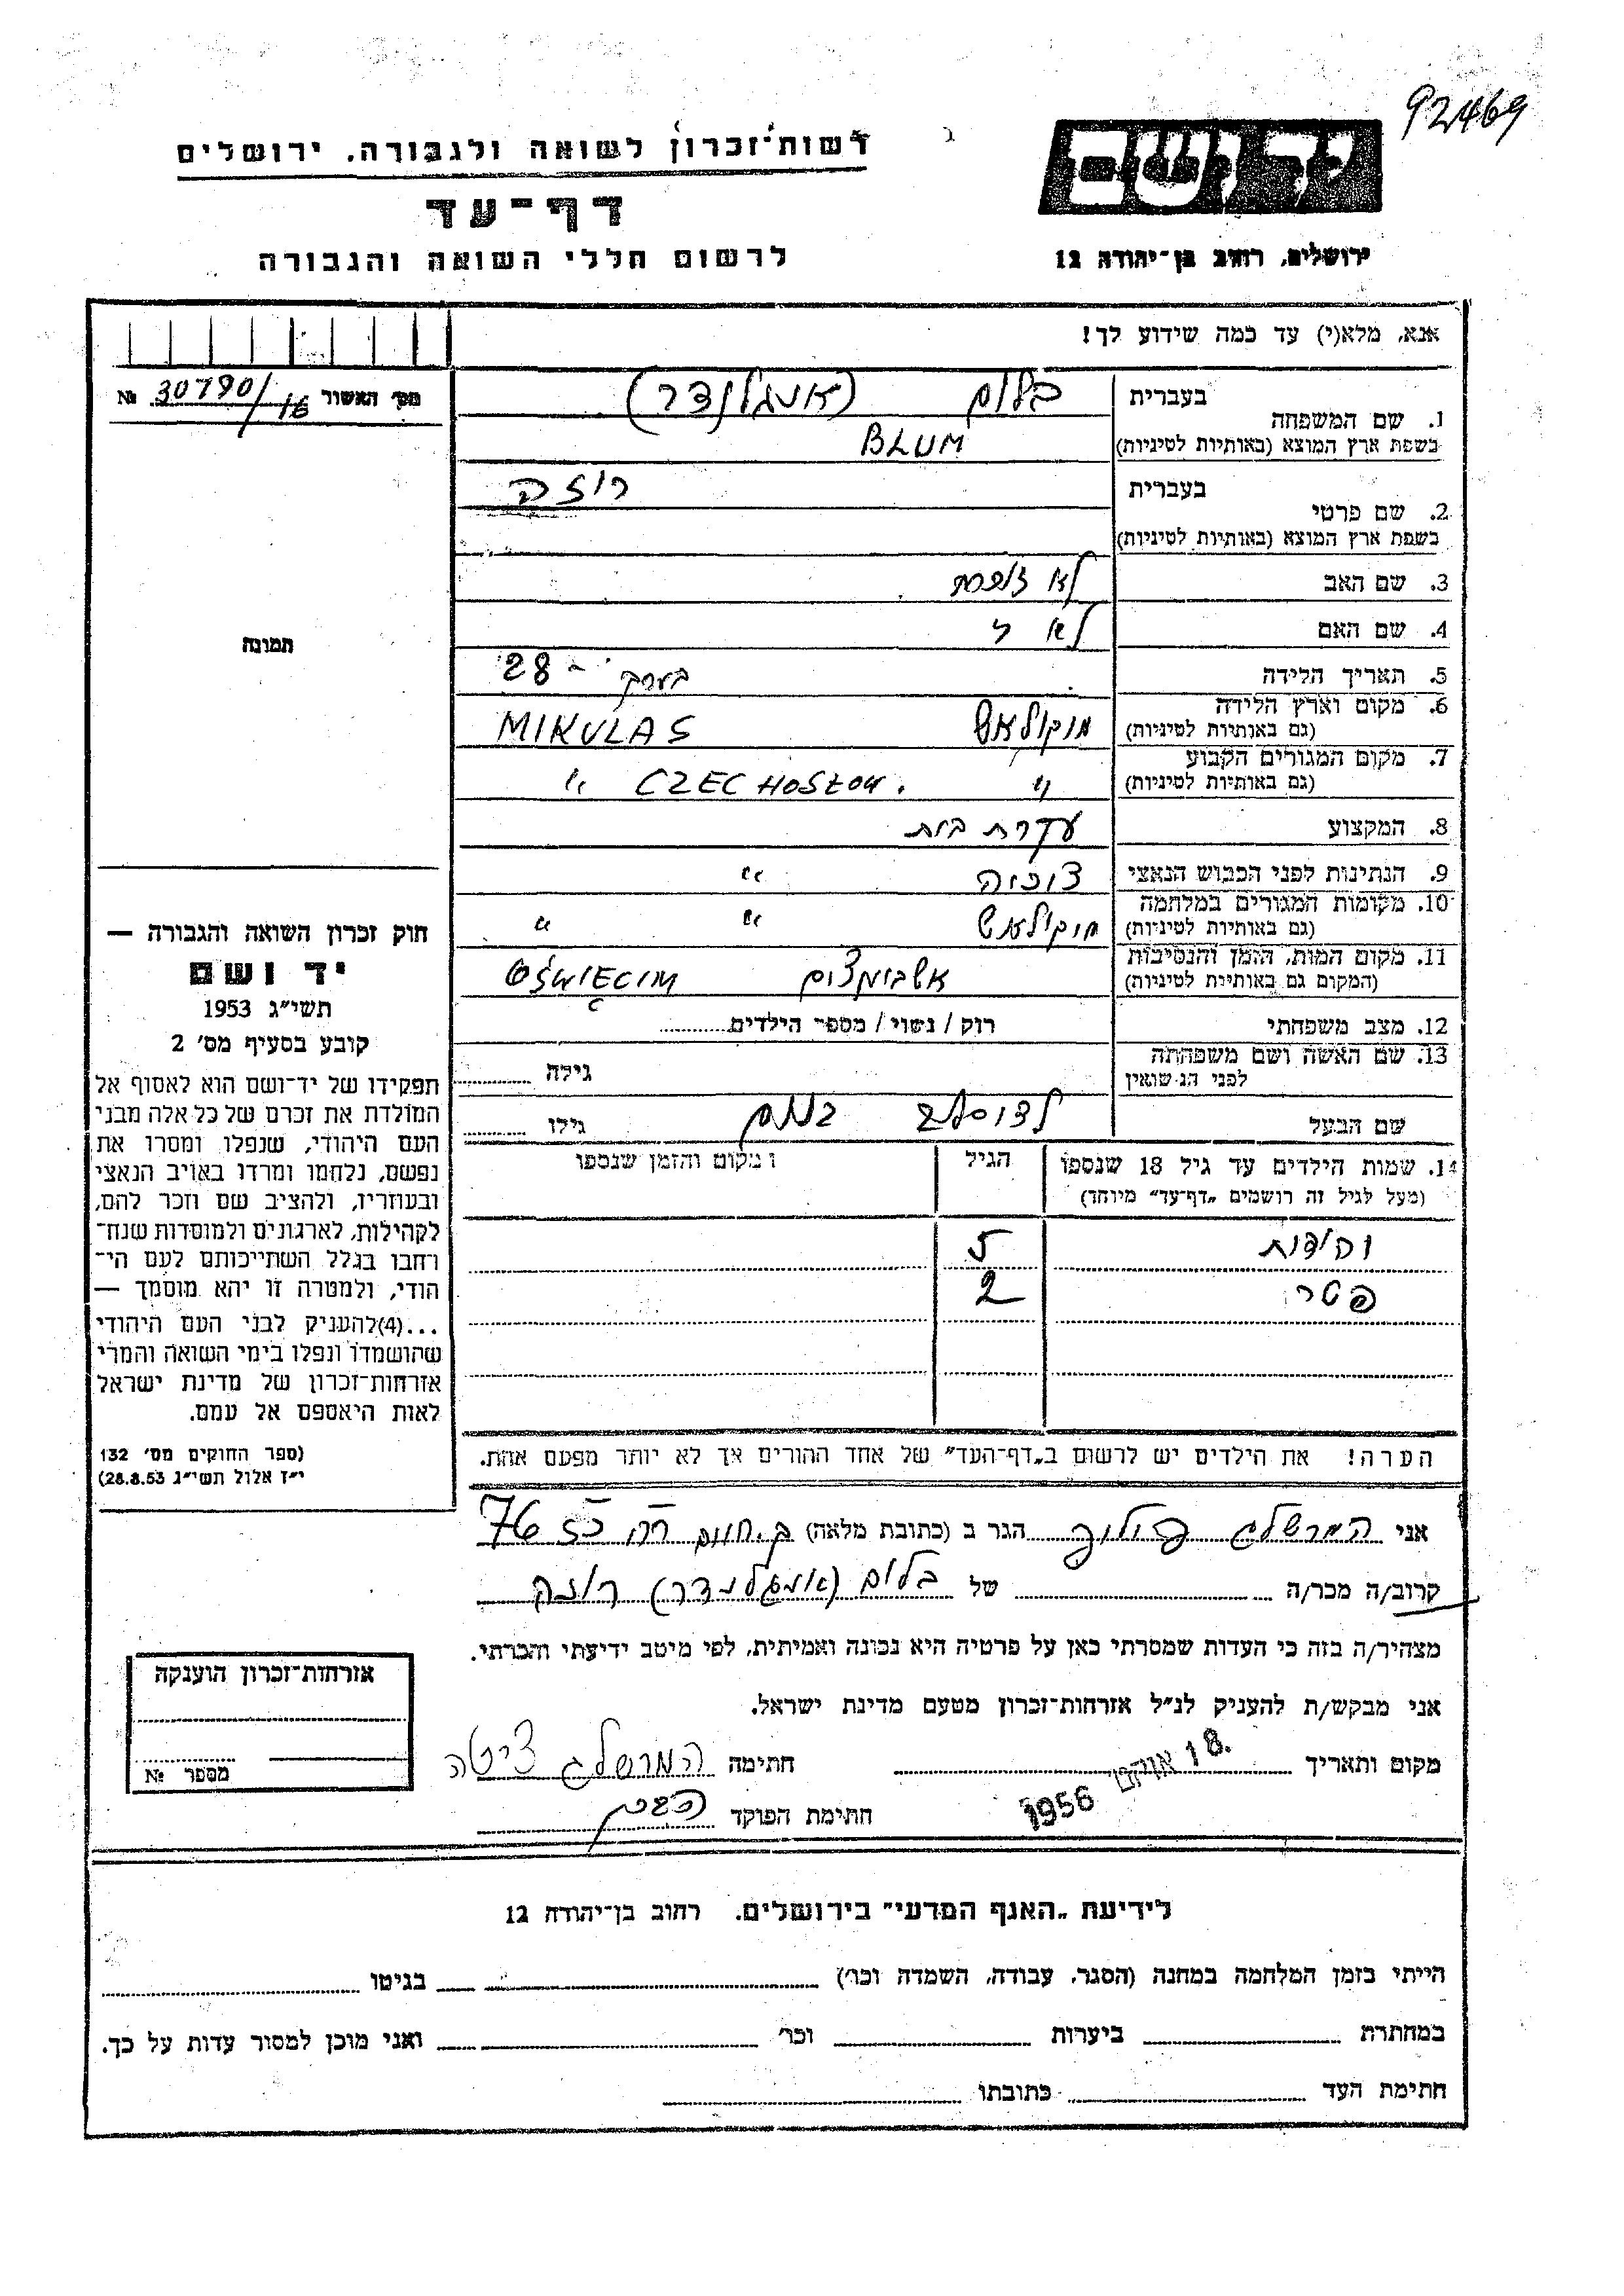 92469
רשות־זכרון לשואה ולגבורה, ירושלים
דף־עד
לרשום חללי השואה והגבורה
יד ושם
ירושלים, רחוב בן־יהודה 12
אנא, מלא(י) עד כמה שידוע לך!
מס׳ האשור 30790/16 №
תמונה
1. שם המשפחה
בעברית בלום (אנגלנדר)
בשפת ארץ המוצא (באותיות לטיניות) BLUM
2. שם פרטי
בעברית רוזה
בשפת ארץ המוצא (באותיות לטיניות)
3. שם האב לא זוכרת
4. שם האם לא
5. תאריך הלידה בערך – 28
6. מקום וארץ הלידה
(גם באותיות לטיניות) מיקולאש MIKULAS
7. מקום המגורים הקבוע
(גם באותיות לטיניות) " CZECHOSŁOW. "
8. המקצוע עקרת בית
9. הנתינות לפני הכבוש הנאצי צ'כיה "
10. מקומות המגורים במלחמה
(גם באותיות לטיניות) מיקולאש " "
11. מקום המות, הזמן והנסיבות
(המקום גם באותיות לטיניות) אשבינצים OŚWIĘCIM
12. מצב משפחתי רוק / נשוי / מספר הילדים
13. שם האשה ושם משפחתה
לפני הנשואין גילה
שם הבעל בלום גילו
14. שמות הילדים עד גיל 18 שנספו
(מעל לגיל זה רושמים „דף־עד" מיוחד)
הגיל
מקום והזמן שנספו
יהודית 5
פטר 2
הערה! את הילדים יש לרשום ב„דף־העד" של אחד ההורים אך לא יותר מפעם אחת.
חוק זכרון השואה והגבורה —
יד ושם
תשי״ג 1953
קובע בסעיף מס׳ 2
תפקידו של יד־ושם הוא לאסוף אל
המולדת את זכרם של כל אלה מבני
העם היהודי, שנפלו ומסרו את
נפשם, נלחמו ומרדו באויב הנאצי
ובעוזריו, ולהציב שם וזכר להם,
לקהילות, לארגונים ולמוסדות שנח־
רחבו בגלל השתייכותם לעם הי־
הודי, ולמטרה זו יהא מוסמך —
...(4)להעניק לבני העם היהודי
שהושמדו ונפלו בימי השואה והמרי
אזרחות־זכרון של מדינת ישראל
לאות היאספם אל עמם.
(ספר החוקים מס׳ 132
י״ז אלול תשי״ג 28.8.53)
אני המרשלג הגר ב (כתובת מלאה) 76
קרוב/ה מכר/ה של בלום (אנגלנדר) רוזה
מצהיר/ה בזה כי העדות שמסרתי כאן על פרטיה היא נכונה ואמיתית, לפי מיטב ידיעתי והכרתי.
אני מבקש/ת להעניק לנ״ל אזרחות־זכרון מטעם מדינת ישראל.
מקום ותאריך 18. אוק׳ 1956 חתימה המרשלג
חתימת הפוקד
אזרחות־זכרון הוענקה
מספר №
לידיעת „האגף המדעי" בירושלים. רחוב בן־יהודה 12
הייתי בזמן המלחמה במחנה (הסגר, עבודה, השמדה וכו׳) בגיטו
במחתרת ביערות וכו׳ ואני מוכן למסור עדות על כך.
חתימת העד כתובתו